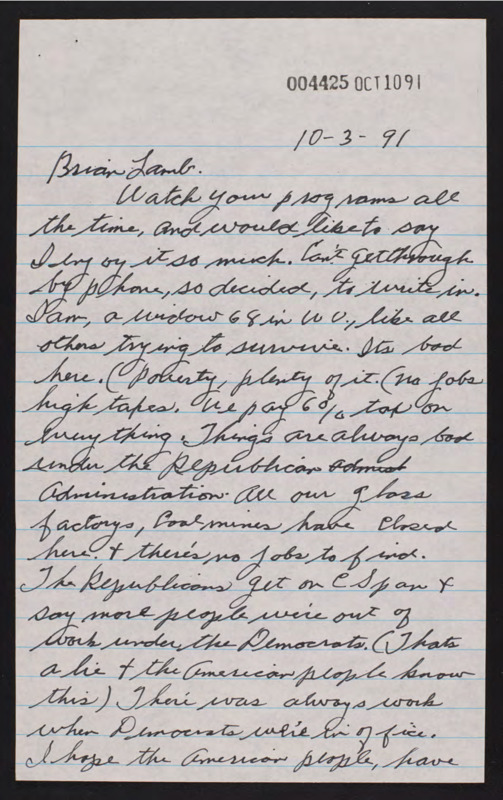 004425 OCT1091
10-3-91
Brian Lamb.
Watch your programs all
the time, and would like to say
I enjoy it so much. Can't get through
by phone, so decided, to write in.
I am, a widow 68 in W V., like all
others trying to survive. Its bad
here. (Poverty, plenty of it. (no jobs
high taxes. We pay 6% tax on
everything. Things are always bad
under the Republican admist
Administration. All our glass
factorys, Coal mines have closed
here. & there's no jobs to find.
The Republicans get on C Span &
say more people were out of
work under, the Democrats. (Thats
a lie & the American people know
this) There was always work
when Democrats were in office.
I hope the American people, have